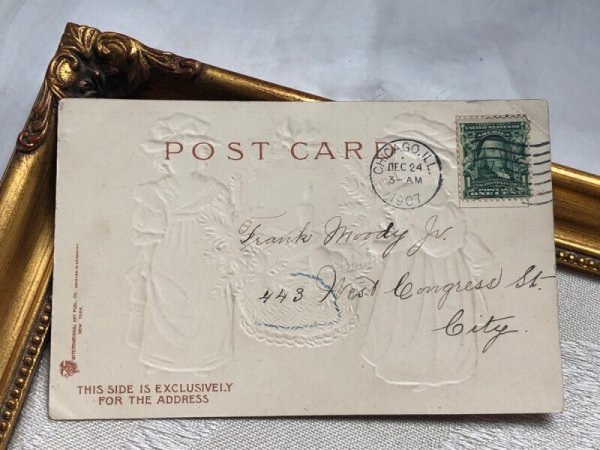 POST CARD
CHICAGO, ILL.
DEC 24
3-AM
1907
UNITED STATES OF
AMERICA
Frank Moody Jr.
443 West Congress St.
City.
INTERNATIONAL ART PUBL. CO. PRINTED IN GERMANY.
NEW YORK.
THIS SIDE IS EXCLUSIVELY
FOR THE ADDRESS